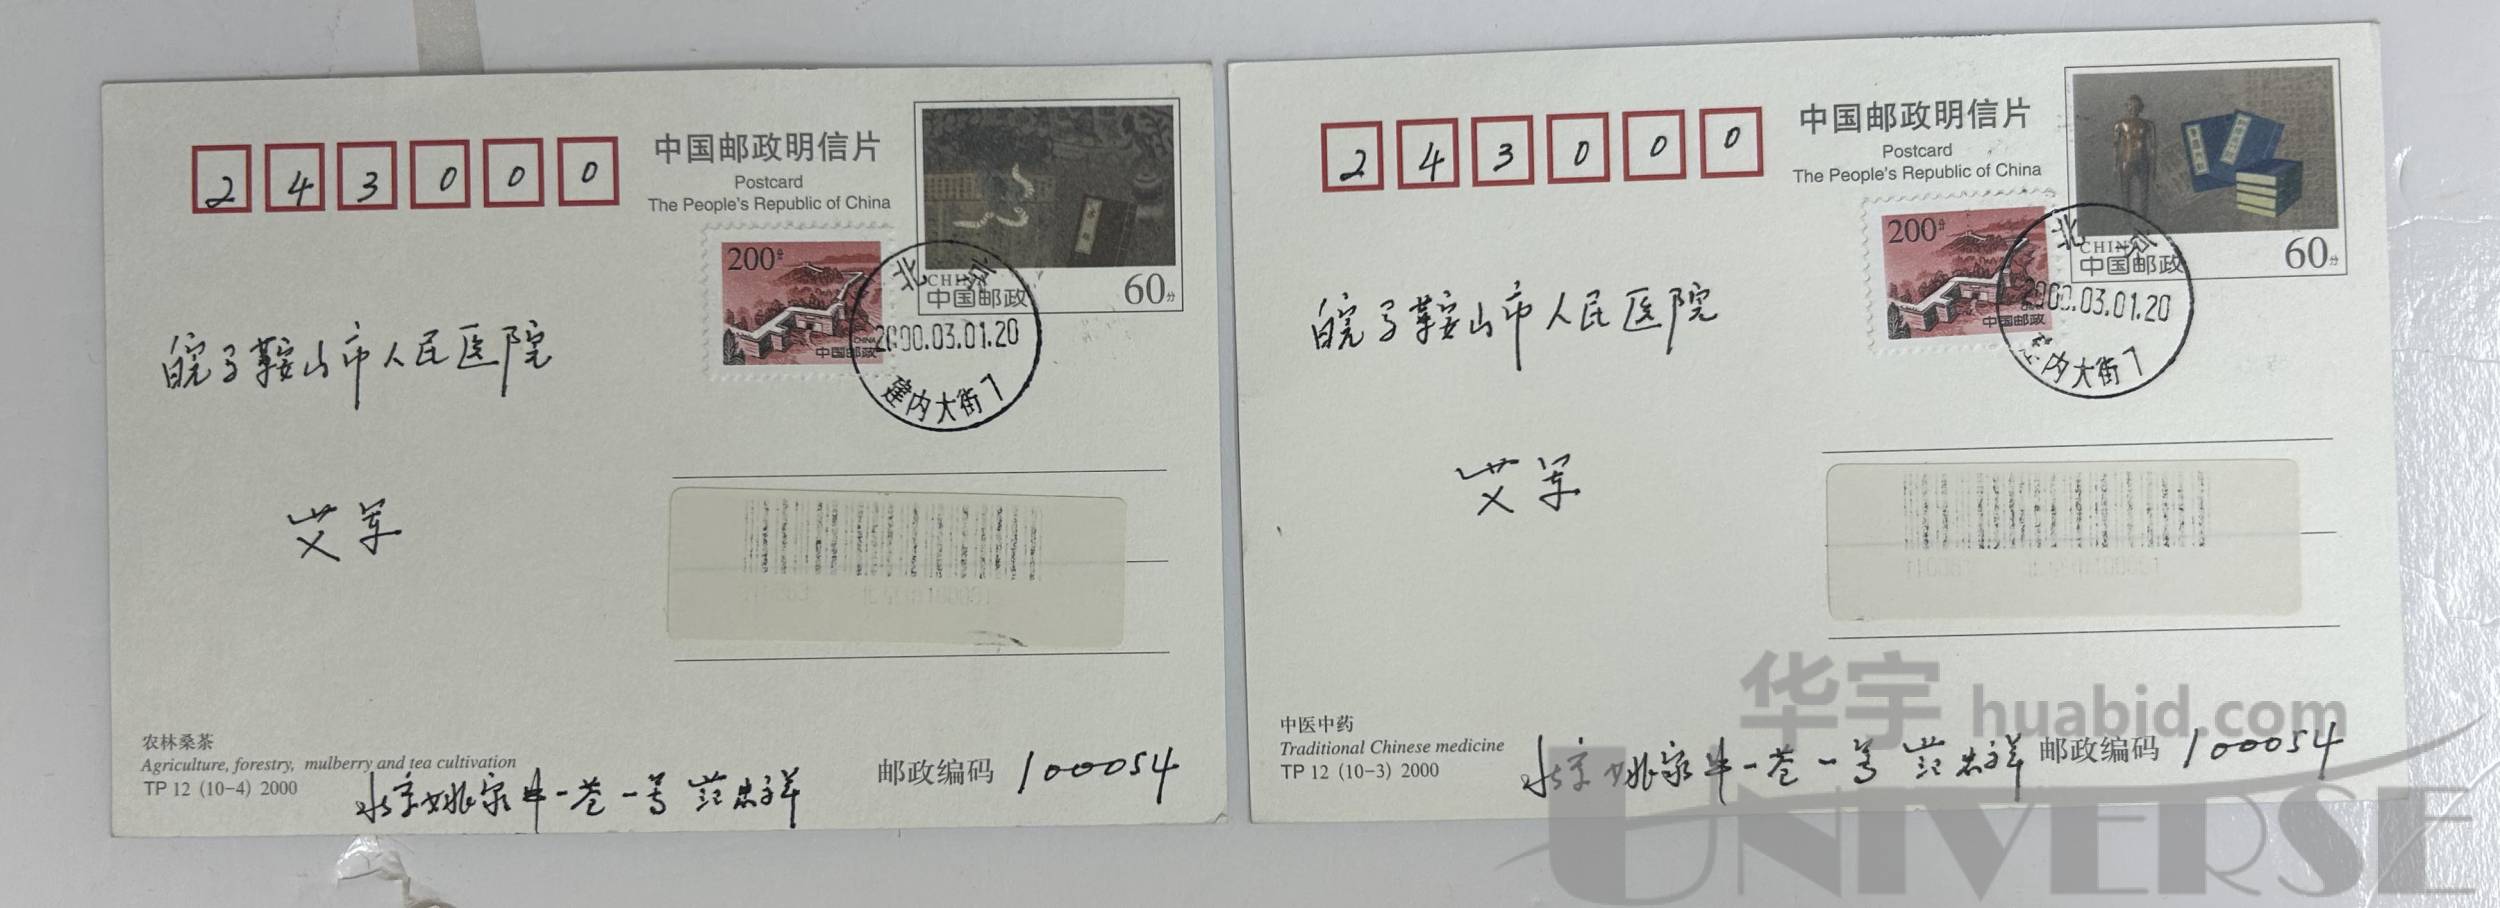 243000
中国邮政明信片
Postcard
The People's Republic of China
200分
CHINA
中国邮政
CHINA
中国邮政
60分
北京
2000.03.01.20
建内大街7
皖马鞍山市人民医院
艾军
农林桑茶
Agriculture, forestry, mulberry and tea cultivation
TP 12 (10-4) 2000
北京姚家井一巷一号 范忠祥
邮政编码 100054
243000
中国邮政明信片
Postcard
The People's Republic of China
200分
中国邮政
CHINA
中国邮政
60分
北京
2000.03.01.20
建内大街7
皖马鞍山市人民医院
艾军
中医中药
Traditional Chinese medicine
TP 12 (10-3) 2000
北京姚家井一巷一号 范忠祥
邮政编码 100054
华宇 huabid.com
UNIVERSE